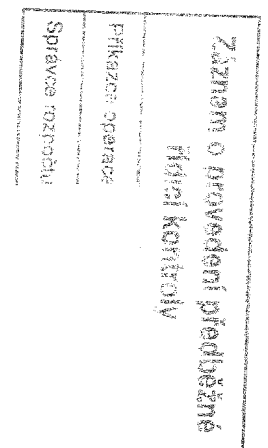 Záznam o provedení předběžné
řídící kontroly
Příkazce operace
Správce rozpočtu